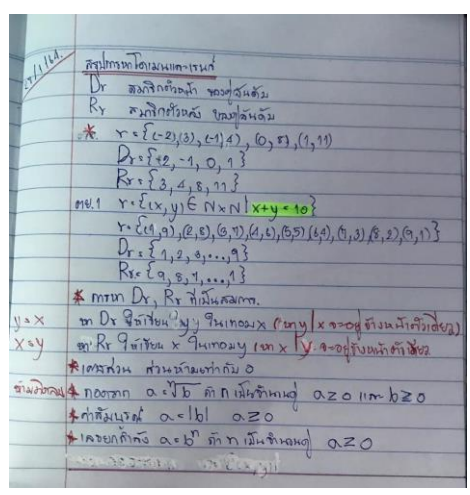 25/1/64
สรุปการหาโดเมนและเรนจ์
Dr สมาชิกตัวหน้า ของคู่อันดับ
Rr สมาชิกตัวหลัง ของคู่อันดับ
* r = {(-2)(3), (-1)4), (0, 8), (1, 11)
Dr = {-2, -1, 0, 1}
Rr = {3, 4, 8, 11}
ตย.1 r = {(x, y) ∈ N x N | x+y = 10}
r = {(1,9), (2,8), (3,7), (4,6), (5,5) (6,4), (7,3) (8,2), (9,1)}
Dr = {1, 2, 3, ..., 9}
Rr = {9, 8, 7, ..., 1}
* การหา Dr, Rr ที่เป็นสมการ
y = x หา Dr ให้เขียน y ในเทอม x (หา y | x จะอยู่ข้างหน้าตัวเดียว)
x = y หา Rr ให้เขียน x ในเทอม y (หา x | y จะอยู่ข้างหน้าตัวเดียว
* เศษส่วน ส่วนห้ามเท่ากับ 0
* ถอดราก a = ⁿ√b ถ้า n เป็นจำนวนคู่ a ≥ 0 และ b ≥ 0
* ค่าสัมบูรณ์ a = |b| a ≥ 0
* เลขยกกำลัง a = bⁿ ถ้า n เป็นจำนวนคู่ a ≥ 0